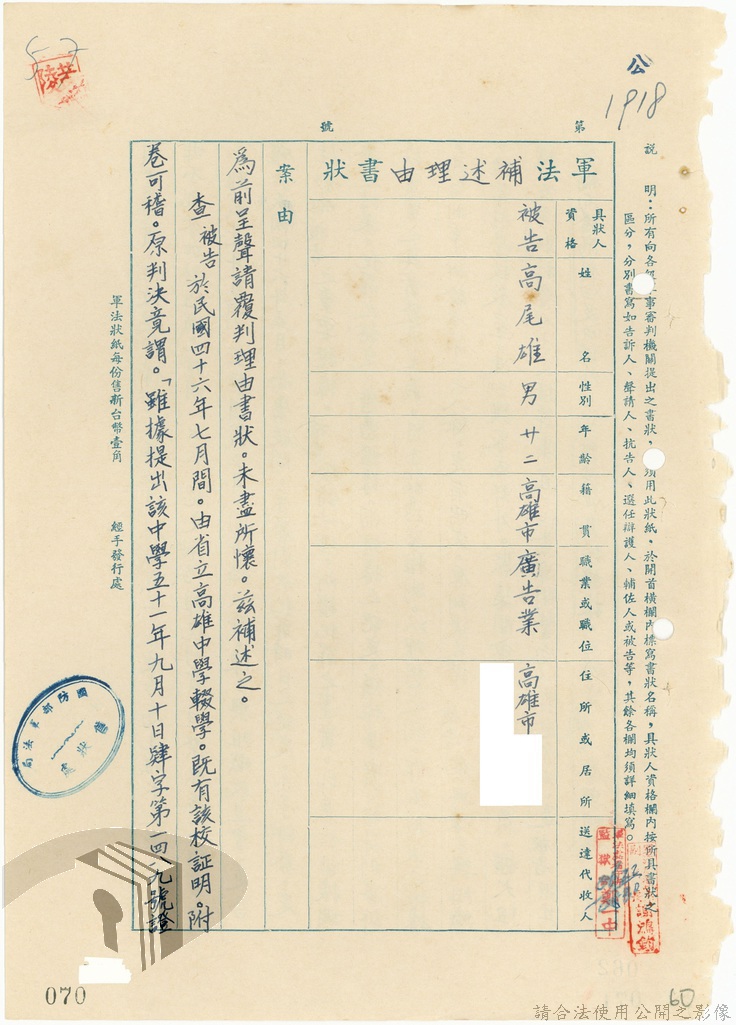 公
1918
第
號
說明：所有向各級軍事審判機關提出之書狀，須用此狀紙，於開首橫欄內標寫書狀名稱，具狀人資格欄內按所具書狀之
區分，分別書寫如告訴人、聲請人、抗告人、選任辯護人、輔佐人或被告等，其餘各欄均須詳細填寫。
軍法補述理由書狀
具狀人資格
姓名
性別
年齡
籍貫
職業或職位
住所或居所
送達代收人
被告
高尾雄
男
廿二
高雄市
廣告業
高雄市
案由
為前呈聲請覆判理由書狀。未盡所懷。茲補述之。
查被告於民國四十六年七月間。由省立高雄中學輟學。既有該校証明。附
卷可稽。原判決竟謂。「雖據提出該中學五十一年九月十日肄字第一四九號證
軍法狀紙每份售新台幣壹角
經手發行處
國防部軍法局
售狀處
070
60
請合法使用公開之影像